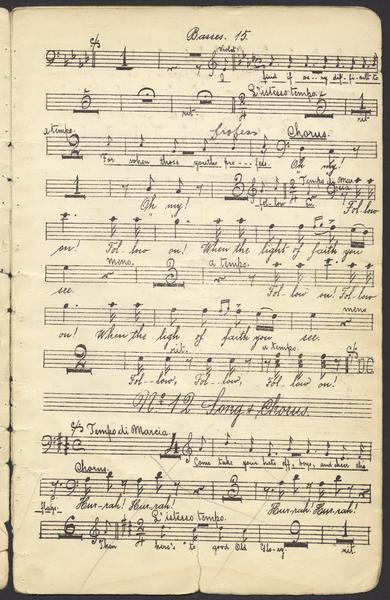 Basses. 15.
Violet
I find it ea-- sy dif-fi-cult to
L'istesso tempo.
5 rit. 2 5 1 rit
a tempo. Profess Chorus.
2 For when those youths pro---fess. Oh my!
Tempo di Mar
1 1 3
Oh my! fol-low on. Fol-low
on! Fol-low on! When the light of faith you
meno. a tempo.
3
see. Fol-low on! Fol-low
meno
on! When the ligh of faith you see.
rit. a tempo.
2
Fol--low, Fol-low, Fol-low on! D.C.
No 12 Song & Chorus.
Tempo di Marcia.
4
Come take your hats off, boys, and cheer the
Chorus.
3
flag:- Hur-rah! Hur-rah! Hur-rah! Hur-rah!
L'istesso tempo.
6 2 9 1
Then here's to good Old Glo-ry rit